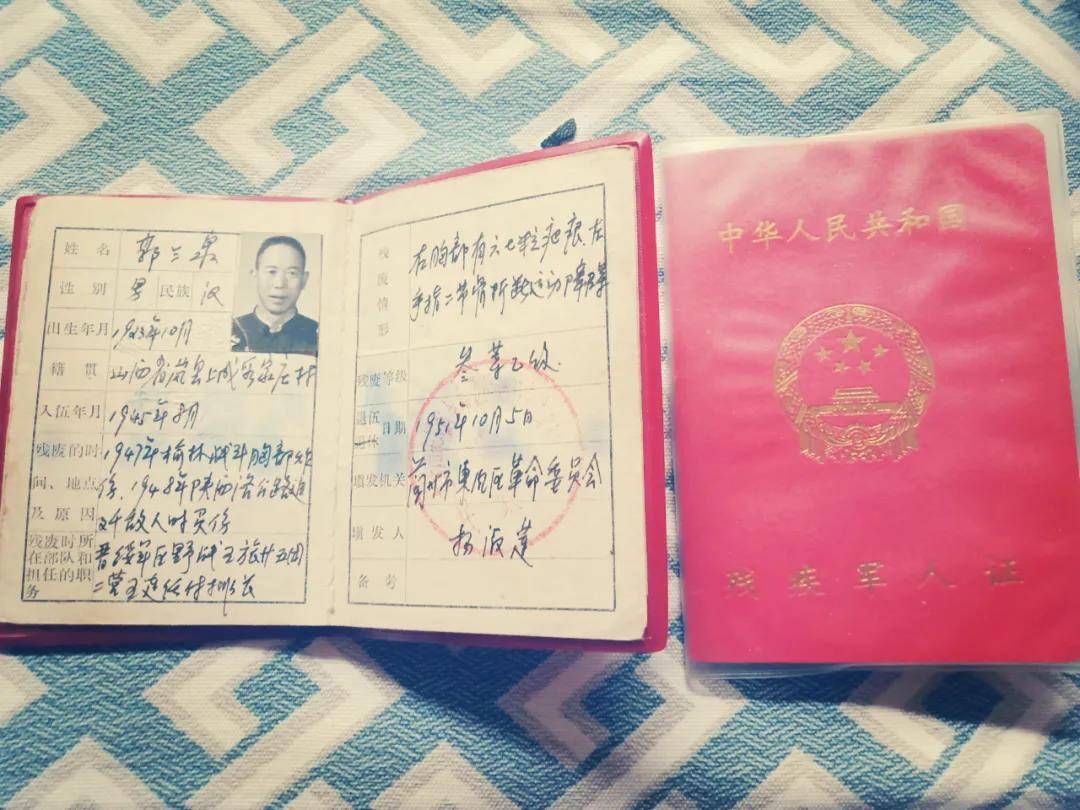 姓名 郭兰泉
性别 男 民族 汉
出生年月 1923年10月
籍贯 山西省岚县上
入伍年月 1945年8月
残废的时 1947年榆林战斗胸部
间、地点 1948年陕西洛
及原因 敌人时负伤
残废时所
在部队和 晋绥军区野战五旅廿五团
担任的职 二营五连任付排长
务
残废情形 右胸部有六七粒疤痕、左
手指二节骨折断运动障碍
残废等级 叁等乙级
退伍
退休 日期 1951年10月5日
填发机关 兰州市东风区革命委员会
填发人 杨
备考
中华人民共和国
残疾军人证